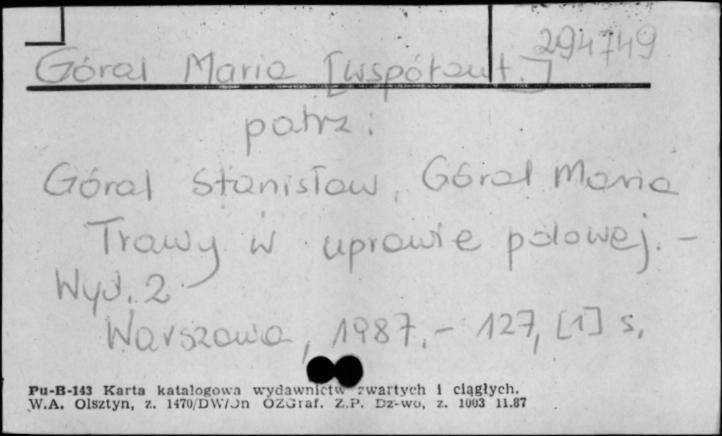 294749
Góral Maria [współaut.]
patrz:
Góral Stanisław, Góral Maria
Trawy w uprawie polowej. -
Wyd. 2
Warszawa, 1987. - 127, [1] s.
Pu-B-143 Karta katalogowa wydawnictw zwartych i ciągłych.
W.A. Olsztyn, z. 1470/DW/Jn OZGraf. Z.P. Dz-wo, z. 1003 11.87